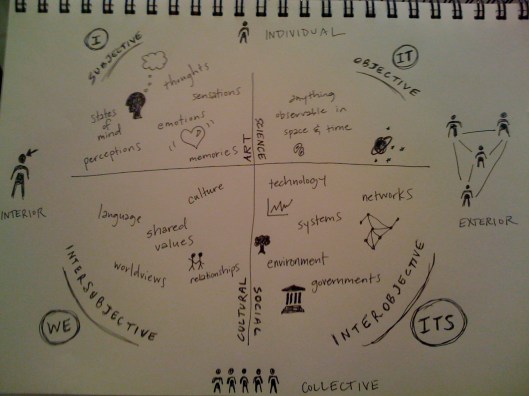 INDIVIDUAL
I
SUBJECTIVE
thoughts
sensations
states
of
mind
emotions
perceptions
memories
ART
IT
OBJECTIVE
anything
observable in
space & time
SCIENCE
INTERIOR
EXTERIOR
culture
language
shared
values
worldviews
relationships
INTERSUBJECTIVE
WE
CULTURAL
technology
networks
systems
environment
governments
SOCIAL
INTEROBJECTIVE
ITS
COLLECTIVE